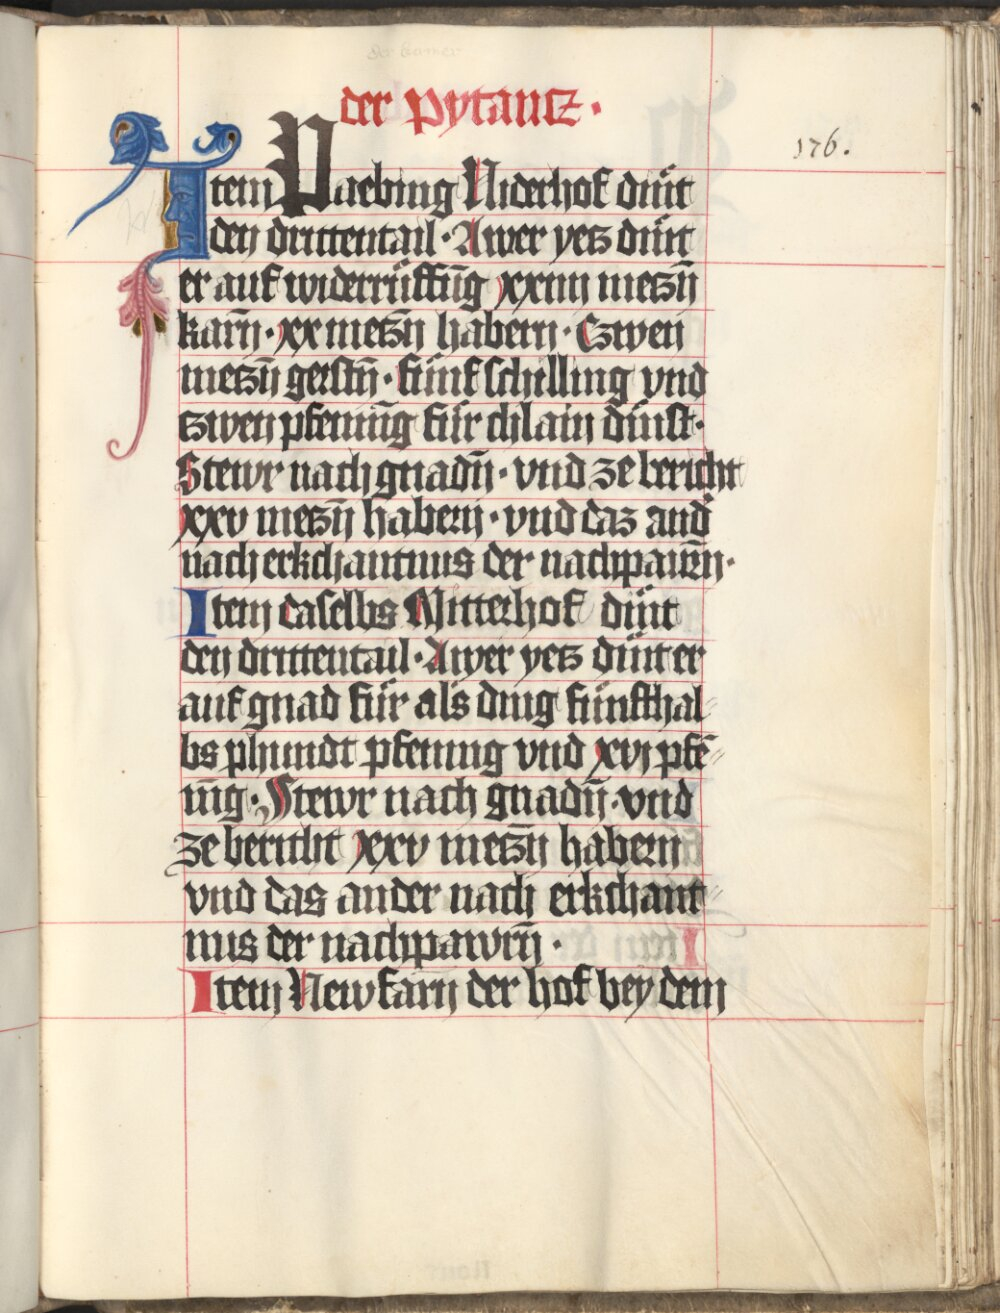 der Pytantz.
176.
Item Paebing Niderhof dint
den drittentail. Awer yetz dint
er auf widerrüffu̅g xxiiii metzn̄
karn̄. xx metzn̄ habern. Czwen
metzn̄ gerstn̄. fünf schilling vnd
tzwen pfenni̅g für chlain dinst.
Stewr nach gnadn̄. vnd ze bericht
xxv metzn̄ habern. vnd daz and̓
nach erkchantnus der nachpawrn̄.
Item daselbs Mitterhof dint
den drittentail. Awer yetz dint er
auf gnad für als ding fünfthal
bs phundt pfening vnd xvj pfe̅
ni̅g. Stewr nach gnadn̄. vnd
ze bericht xxv metzn̄ habern
vnd das ander nach erkchant
nus der nachpawrn̄.
Item Newfarn der hof bey dem